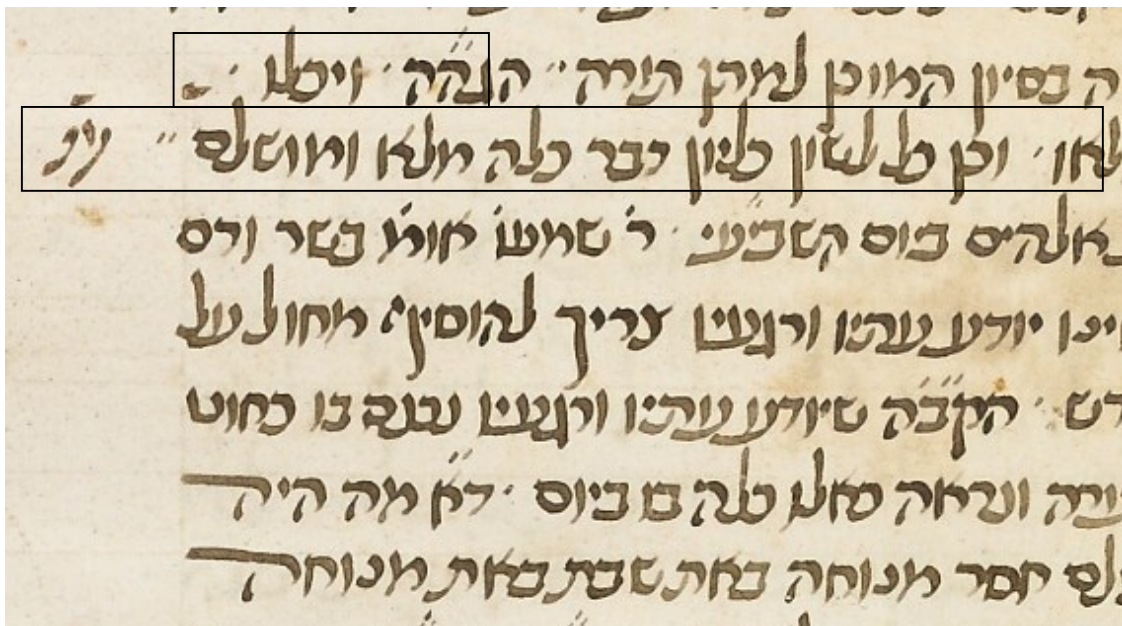 ה בסיון המוכן למתן תורה ׃ הג״הה · ויכלו ·
לאו · וכן כל לשון כליון כבר כלה מלא ומושלם ״
אלהים ביום השביעי · ר׳ שמעו׳ אומ׳ בשר ודם
ינו יודע עתיו ורגעיו צריך להוסיף מחול על
דש · הק״בה שיודע עתיו ורגעיו נכנס בו כחוט
ערה ונראה כאלו כלה בו ביום · ד״א מה היה
לם חסר מנוחה באת שבת באת מנוחה